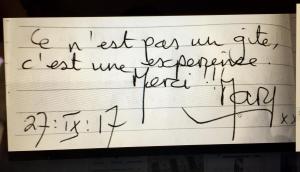 Ce n'est pas un gite,
c'est une experience.
Merci !! Mary
xx
27:IX:17